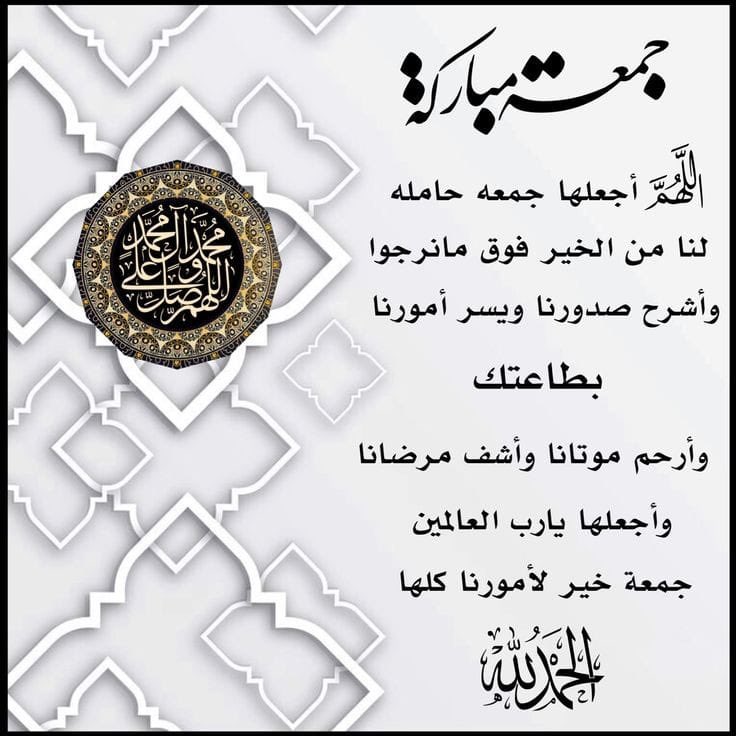 جمعة مباركة
اللَّهُمَّ أجعلها جمعه حامله
لنا من الخير فوق مانرجوا
وأشرح صدورنا ويسر أمورنا
بطاعتك
وأرحم موتانا وأشف مرضانا
وأجعلها يارب العالمين
جمعة خير لأمورنا كلها
الحمدلله
اللهم صل على محمد وآل محمد